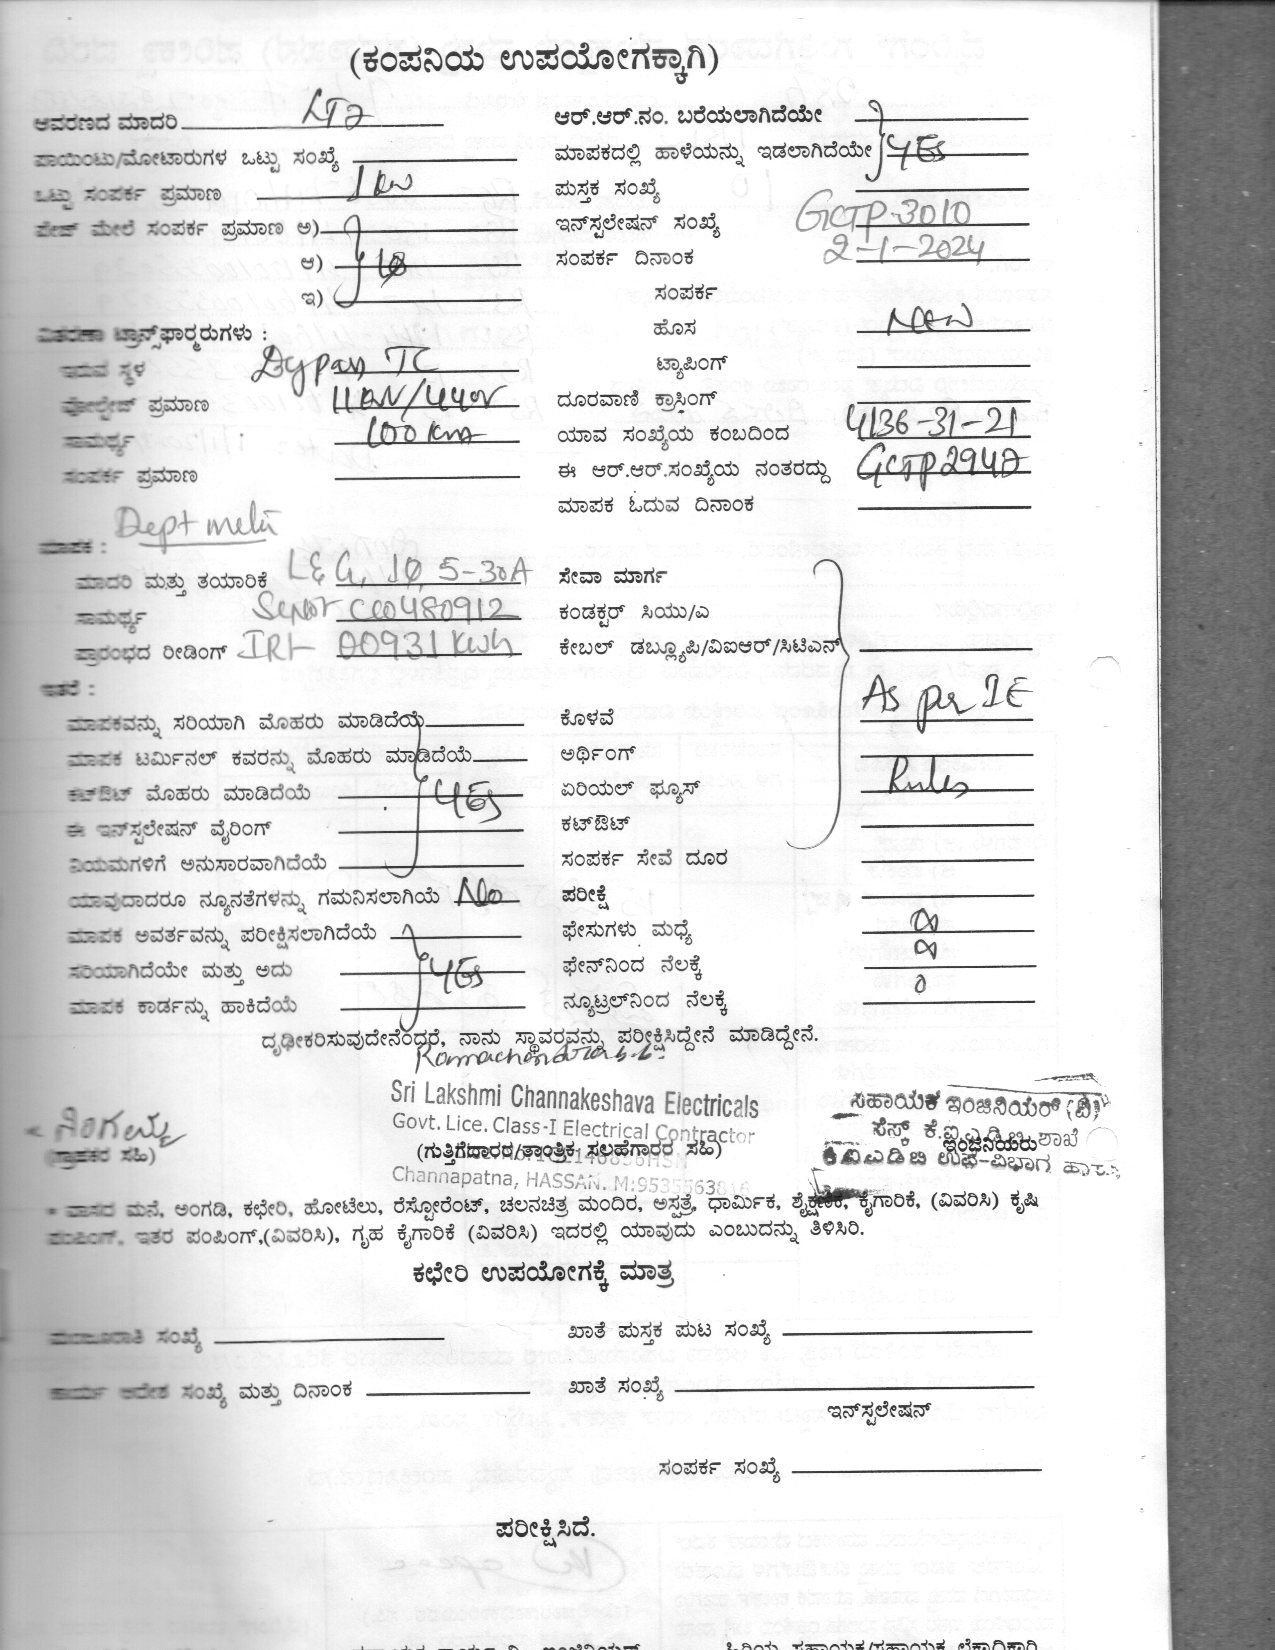 (ಕಂಪನಿಯ ಉಪಯೋಗಕ್ಕಾಗಿ)
ಆವರಣದ ಮಾದರಿ LT2 ಆರ್.ಆರ್.ನಂ. ಬರೆಯಲಾಗಿದೆಯೇ
ಪಾಯಿಂಟು/ಮೋಟಾರುಗಳ ಒಟ್ಟು ಸಂಖ್ಯೆ ಮಾಪಕದಲ್ಲಿ ಹಾಳೆಯನ್ನು ಇಡಲಾಗಿದೆಯೇ YES
ಒಟ್ಟು ಸಂಪರ್ಕ ಪ್ರಮಾಣ 1 kw ಪುಸ್ತಕ ಸಂಖ್ಯೆ
ಪೇಜ್ ಮೇಲೆ ಸಂಪರ್ಕ ಪ್ರಮಾಣ ಅ) ಇನ್‌ಸ್ಟಲೇಷನ್ ಸಂಖ್ಯೆ GCTP-3010
ಆ) 1Φ ಸಂಪರ್ಕ ದಿನಾಂಕ 2-1-2024
ಇ) ಸಂಪರ್ಕ
ವಿತರಣಾ ಟ್ರಾನ್ಸ್‌ಫಾರ್‍ಮರುಗಳು : ಹೊಸ New
ಇರುವ ಸ್ಥಳ Bypass TC ಟ್ಯಾಪಿಂಗ್
ವೋಲ್ಟೇಜ್ ಪ್ರಮಾಣ 11KV/440V ದೂರವಾಣಿ ಕ್ರಾಸಿಂಗ್
ಸಾಮರ್ಥ್ಯ 100 Kva ಯಾವ ಸಂಖ್ಯೆಯ ಕಂಬದಿಂದ 4136-31-21
ಸಂಪರ್ಕ ಪ್ರಮಾಣ ಈ ಆರ್.ಆರ್.ಸಂಖ್ಯೆಯ ನಂತರದ್ದು GCTP2942
ಮಾಪಕ ಓದುವ ದಿನಾಂಕ
Dept meter
ಮಾಪಕ :
ಮಾದರಿ ಮತ್ತು ತಯಾರಿಕೆ L&G, 1Φ, 5-30A ಸೇವಾ ಮಾರ್ಗ
ಸಾಮರ್ಥ್ಯ C00480912 ಕಂಡಕ್ಟರ್ ಸಿಯು/ಎ
ಪ್ರಾರಂಭದ ರೀಡಿಂಗ್ IR1- 00931 Kwh ಕೇಬಲ್ ಡಬ್ಲ್ಯೂಪಿ/ವಿಐಆರ್/ಸಿಟಿಎಸ್
ಇತರೆ :
ಮಾಪಕವನ್ನು ಸರಿಯಾಗಿ ಮೊಹರು ಮಾಡಿದೆಯೆ ಕೊಳವೆ As per IE
ಮಾಪಕ ಟರ್ಮಿನಲ್ ಕವರನ್ನು ಮೊಹರು ಮಾಡಿದೆಯೆ ಅರ್ಥಿಂಗ್
ಕಟ್‌ಔಟ್ ಮೊಹರು ಮಾಡಿದೆಯೆ YES ಏರಿಯಲ್ ಫ್ಯೂಸ್ Rules
ಈ ಇನ್‌ಸ್ಟಲೇಷನ್ ವೈರಿಂಗ್ ಕಟ್‌ಔಟ್
ನಿಯಮಗಳಿಗೆ ಅನುಸಾರವಾಗಿದೆಯೆ ಸಂಪರ್ಕ ಸೇವೆ ದೂರ
ಯಾವುದಾದರೂ ನ್ಯೂನತೆಗಳನ್ನು ಗಮನಿಸಲಾಗಿಯೆ No ಪರೀಕ್ಷೆ
ಮಾಪಕ ಅವರ್ತವನ್ನು ಪರೀಕ್ಷಿಸಲಾಗಿದೆಯೆ ಫೇಸುಗಳು ಮಧ್ಯೆ ∞
ಸರಿಯಾಗಿದೆಯೇ ಮತ್ತು ಅದು YES ಫೇಸ್‌ನಿಂದ ನೆಲಕ್ಕೆ ∞
ಮಾಪಕ ಕಾರ್ಡನ್ನು ಹಾಕಿದೆಯೆ ನ್ಯೂಟ್ರಲ್‌ನಿಂದ ನೆಲಕ್ಕೆ 0
ದೃಢೀಕರಿಸುವುದೇನೆಂದರೆ, ನಾನು ಸ್ಥಾವರವನ್ನು ಪರೀಕ್ಷಿಸಿದ್ದೇನೆ ಮಾಡಿದ್ದೇನೆ.
Sri Lakshmi Channakeshava Electricals
Govt. Lice. Class-I Electrical Contractor
Channapatna, HASSAN.
ಸಹಾಯಕ ಇಂಜಿನಿಯರ್ (ವಿ)
ಸೆಸ್ಕ್ ಕೆ.ಐ.ಎ.ಡಿ.ಬಿ ಶಾಖೆ
ಕೆ.ಐ.ಎ.ಡಿ.ಬಿ ಉಪ-ವಿಭಾಗ
ನಿಂಗಯ್ಯ
(ಗ್ರಾಹಕರ ಸಹಿ) (ಗುತ್ತಿಗೆದಾರರ/ತಾಂತ್ರಿಕ ಸಲಹೆಗಾರರ ಸಹಿ) ಇಂಜಿನಿಯರು
* ವಾಸದ ಮನೆ, ಅಂಗಡಿ, ಕಛೇರಿ, ಹೋಟೆಲು, ರೆಸ್ಟೋರೆಂಟ್, ಚಲನಚಿತ್ರ ಮಂದಿರ, ಆಸ್ಪತ್ರೆ, ಧಾರ್ಮಿಕ, ಶೈಕ್ಷಣಿಕ, ಕೈಗಾರಿಕೆ, (ವಿವರಿಸಿ) ಕೃಷಿ
ಪಂಪಿಂಗ್, ಇತರ ಪಂಪಿಂಗ್,(ವಿವರಿಸಿ), ಗೃಹ ಕೈಗಾರಿಕೆ (ವಿವರಿಸಿ) ಇದರಲ್ಲಿ ಯಾವುದು ಎಂಬುದನ್ನು ತಿಳಿಸಿರಿ.
ಕಛೇರಿ ಉಪಯೋಗಕ್ಕೆ ಮಾತ್ರ
ಮಂಜೂರಾತಿ ಸಂಖ್ಯೆ ಖಾತೆ ಪುಸ್ತಕ ಪುಟ ಸಂಖ್ಯೆ
ಕಾರ್ಯ ಆದೇಶ ಸಂಖ್ಯೆ ಮತ್ತು ದಿನಾಂಕ ಖಾತೆ ಸಂಖ್ಯೆ
ಇನ್‌ಸ್ಟಲೇಷನ್
ಸಂಪರ್ಕ ಸಂಖ್ಯೆ
ಪರೀಕ್ಷಿಸಿದೆ.